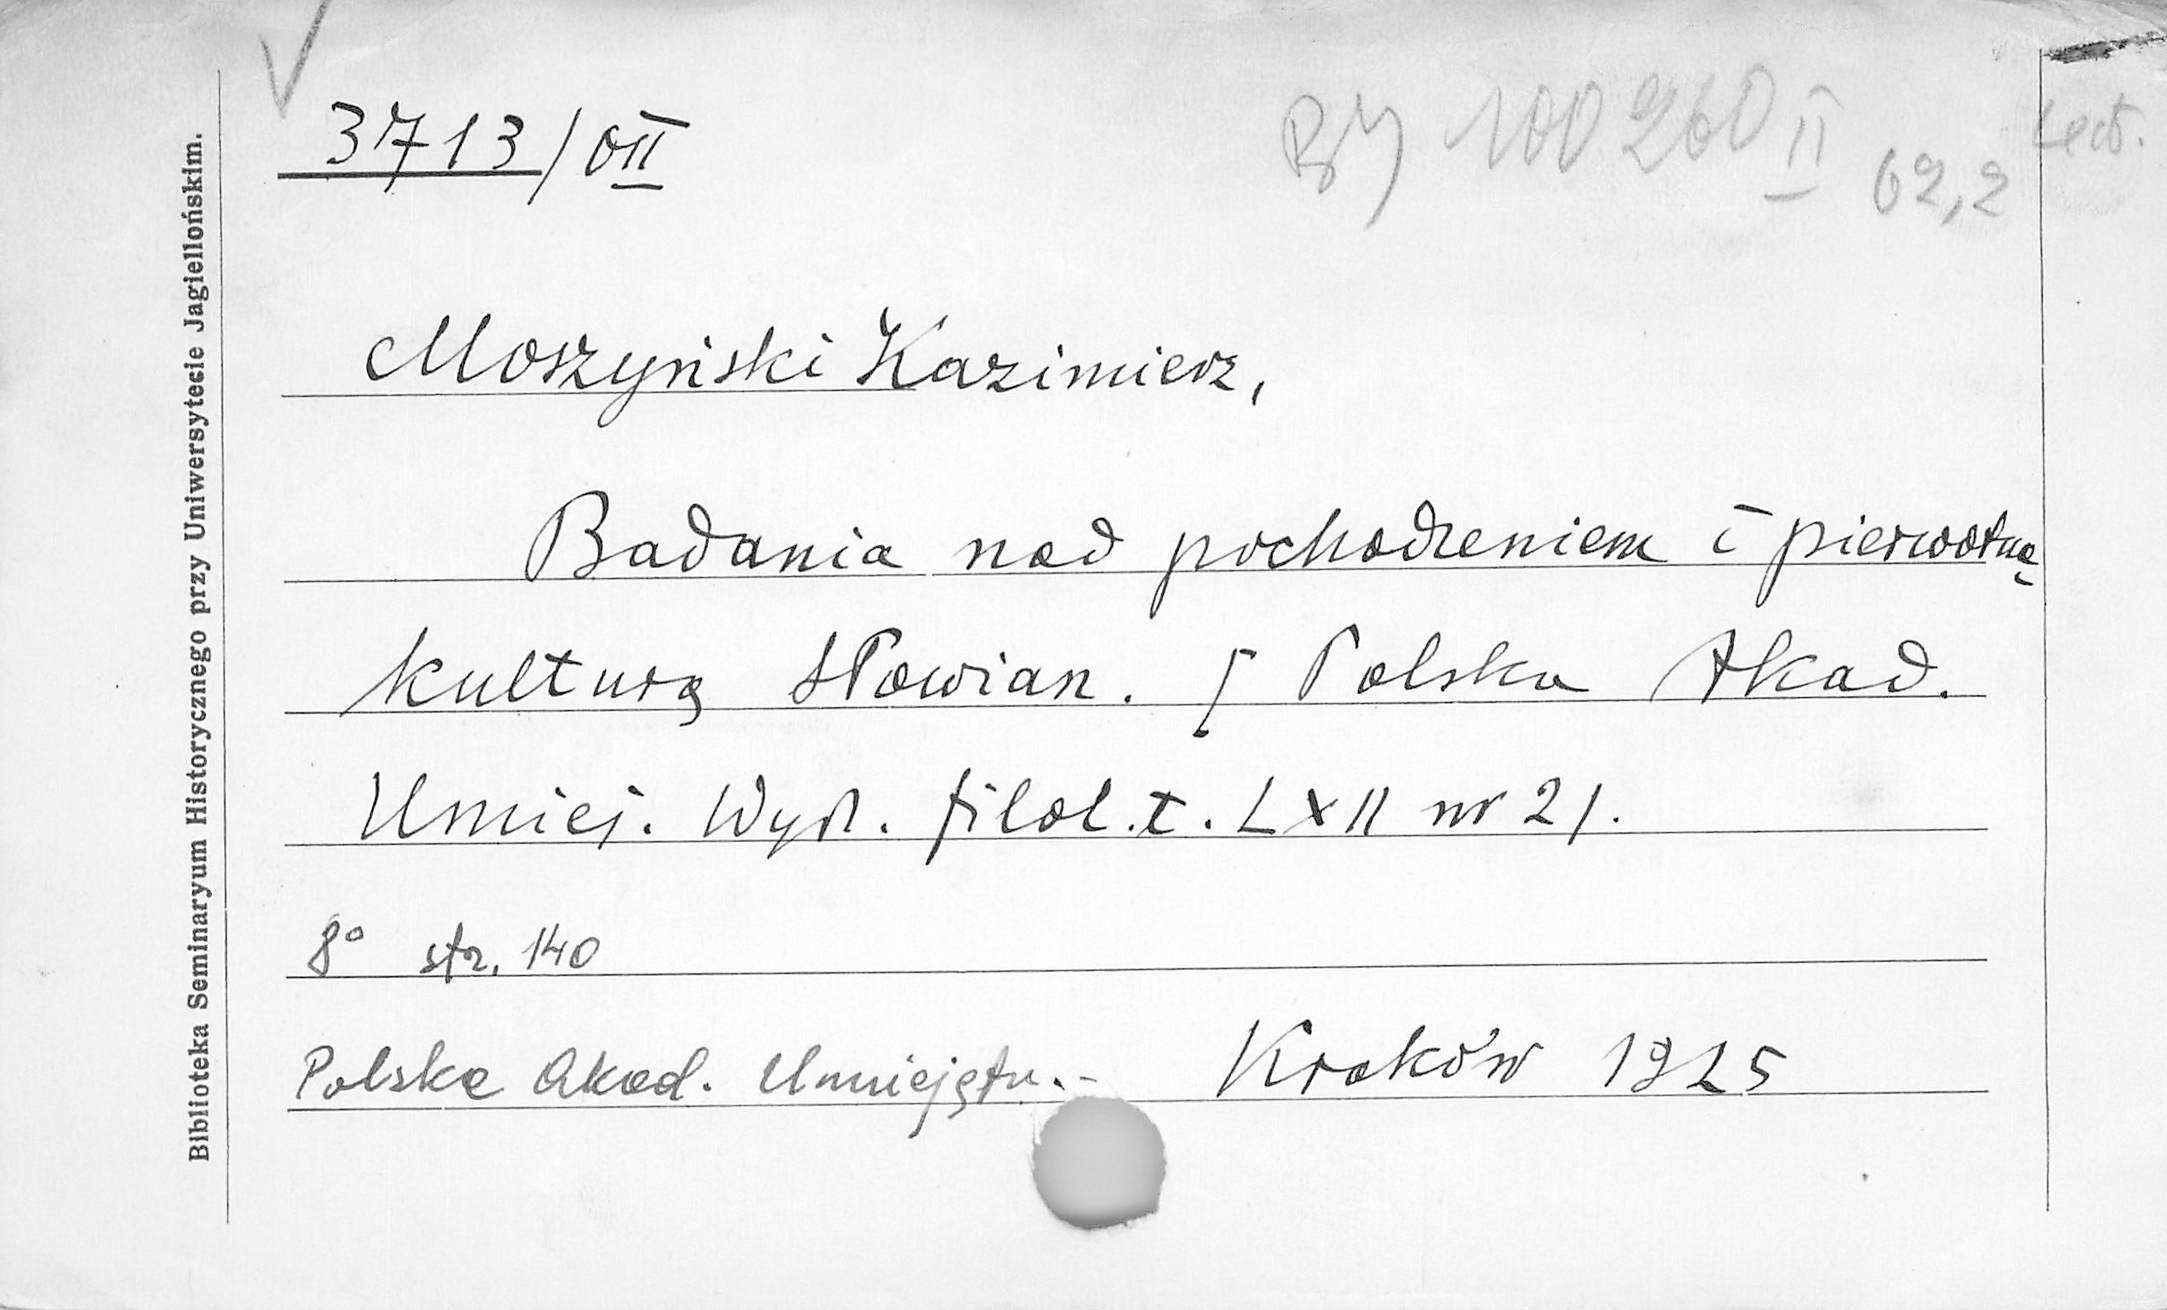 3713/OII
BJ 100260 II 62,2
Moszyński Kazimierz,
Badania nad pochodzeniem i pierwotną
kulturą Słowian. [ Polska Akad.
Umiej. Wydł. filol. t. LXII nr 2/.
8° str. 140
Polska Akad. Umiejętn. - Kraków 1925
Biblioteka Seminaryum Historycznego przy Uniwersytecie Jagiellońskim.